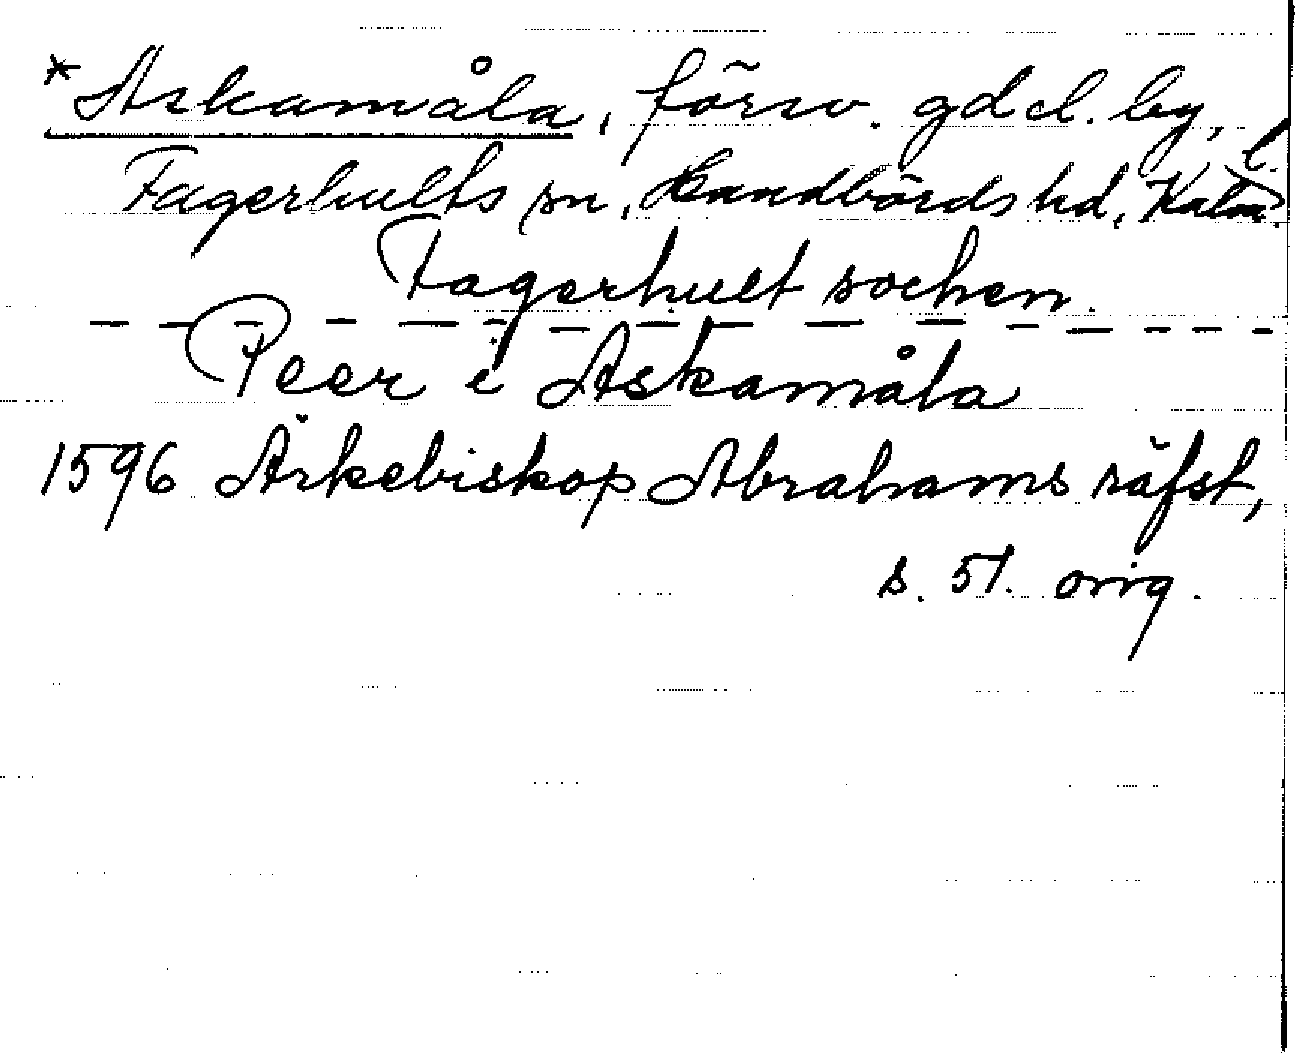 *Askamåla, försv. gd el. by,
Fagerhults sn, Handbörds hd, Kalm. l.
Fagerhult sochen.
Peer i Askamåla
1596 Ärkebiskop Abrahams räfst,
s. 51. orig.